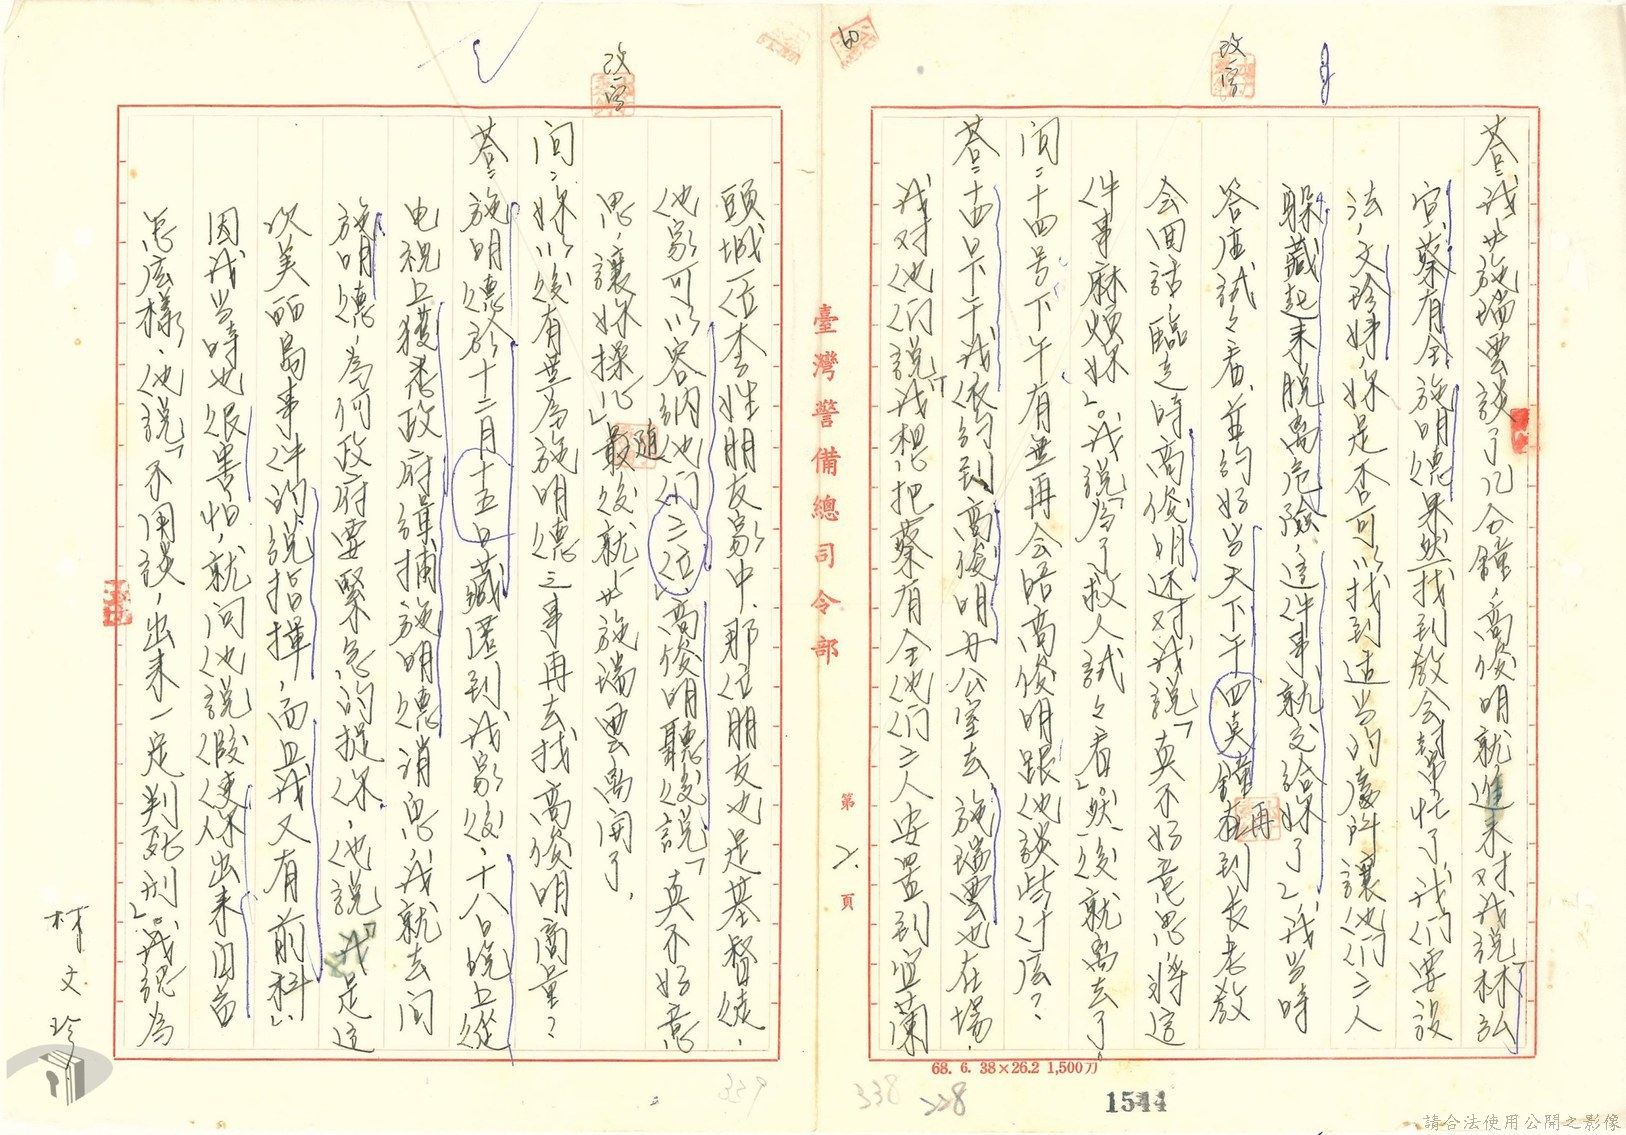 改一字
答：我与施瑞雲談了几分鐘，高俊明就進来对我説「林弘
宣、蔡有全、施明德果然找到教会幫忙了，我们要設
法，文珍姊，妳是否可以找到适当的處所讓他们三人
躲藏起来脱离危險，這件事就交給妳了」我当時
答应試々看，並約好当天下午四奌鐘再到長老教
会回話，臨走時高俊明还对我説「真不好意思將這
件事麻煩妳」。我説「為了救人試々看」。然後就离去了。
问：十四号下午有無再会晤高俊明跟他談些什広？
答：十四日下午我依約到高俊明办公室去，施瑞雲也在場，
我对他们説「我想把蔡有全他们三人安置到宜蘭
68. 6. 38×26.2 1,500刀
1544
338
228
臺灣警備總司令部
第 2. 頁
改一字
頭城一位李姓朋友家中，那位朋友也是基督徒，
他家可以容納他们三位」，高俊明聽後説「真不好意
思，讓妳操心」最後就随与施瑞雲离開了，
问：妳以後有無為施明德之事再去找高俊明商量？
答：施明德於十二月十五日藏匿到我家後，十八日晚上從
电視上獲悉政府緝捕施明德消息，我就去问
施明德，為何政府要緊急的捉你，他説「我是這
次美丽島事件的説指揮，而且我又有前科」，
因我当時也很害怕，就问他説假使你出来自首
怎広樣，他説「不用談，出来一定判死刑」。我認為
柯文珍
339
請合法使用公開之影像